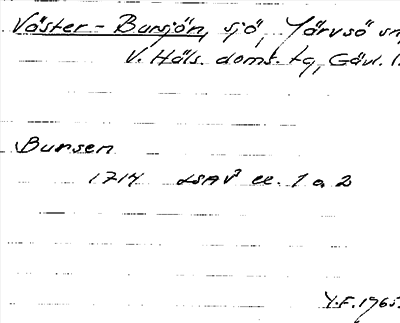 Väster-Bursjön, sjö, Järvsö sn,
V. Häls. doms. tg, Gävl. l.
Bursen
1714 LSAV ee. 1 o 2
Y.F. 1965.